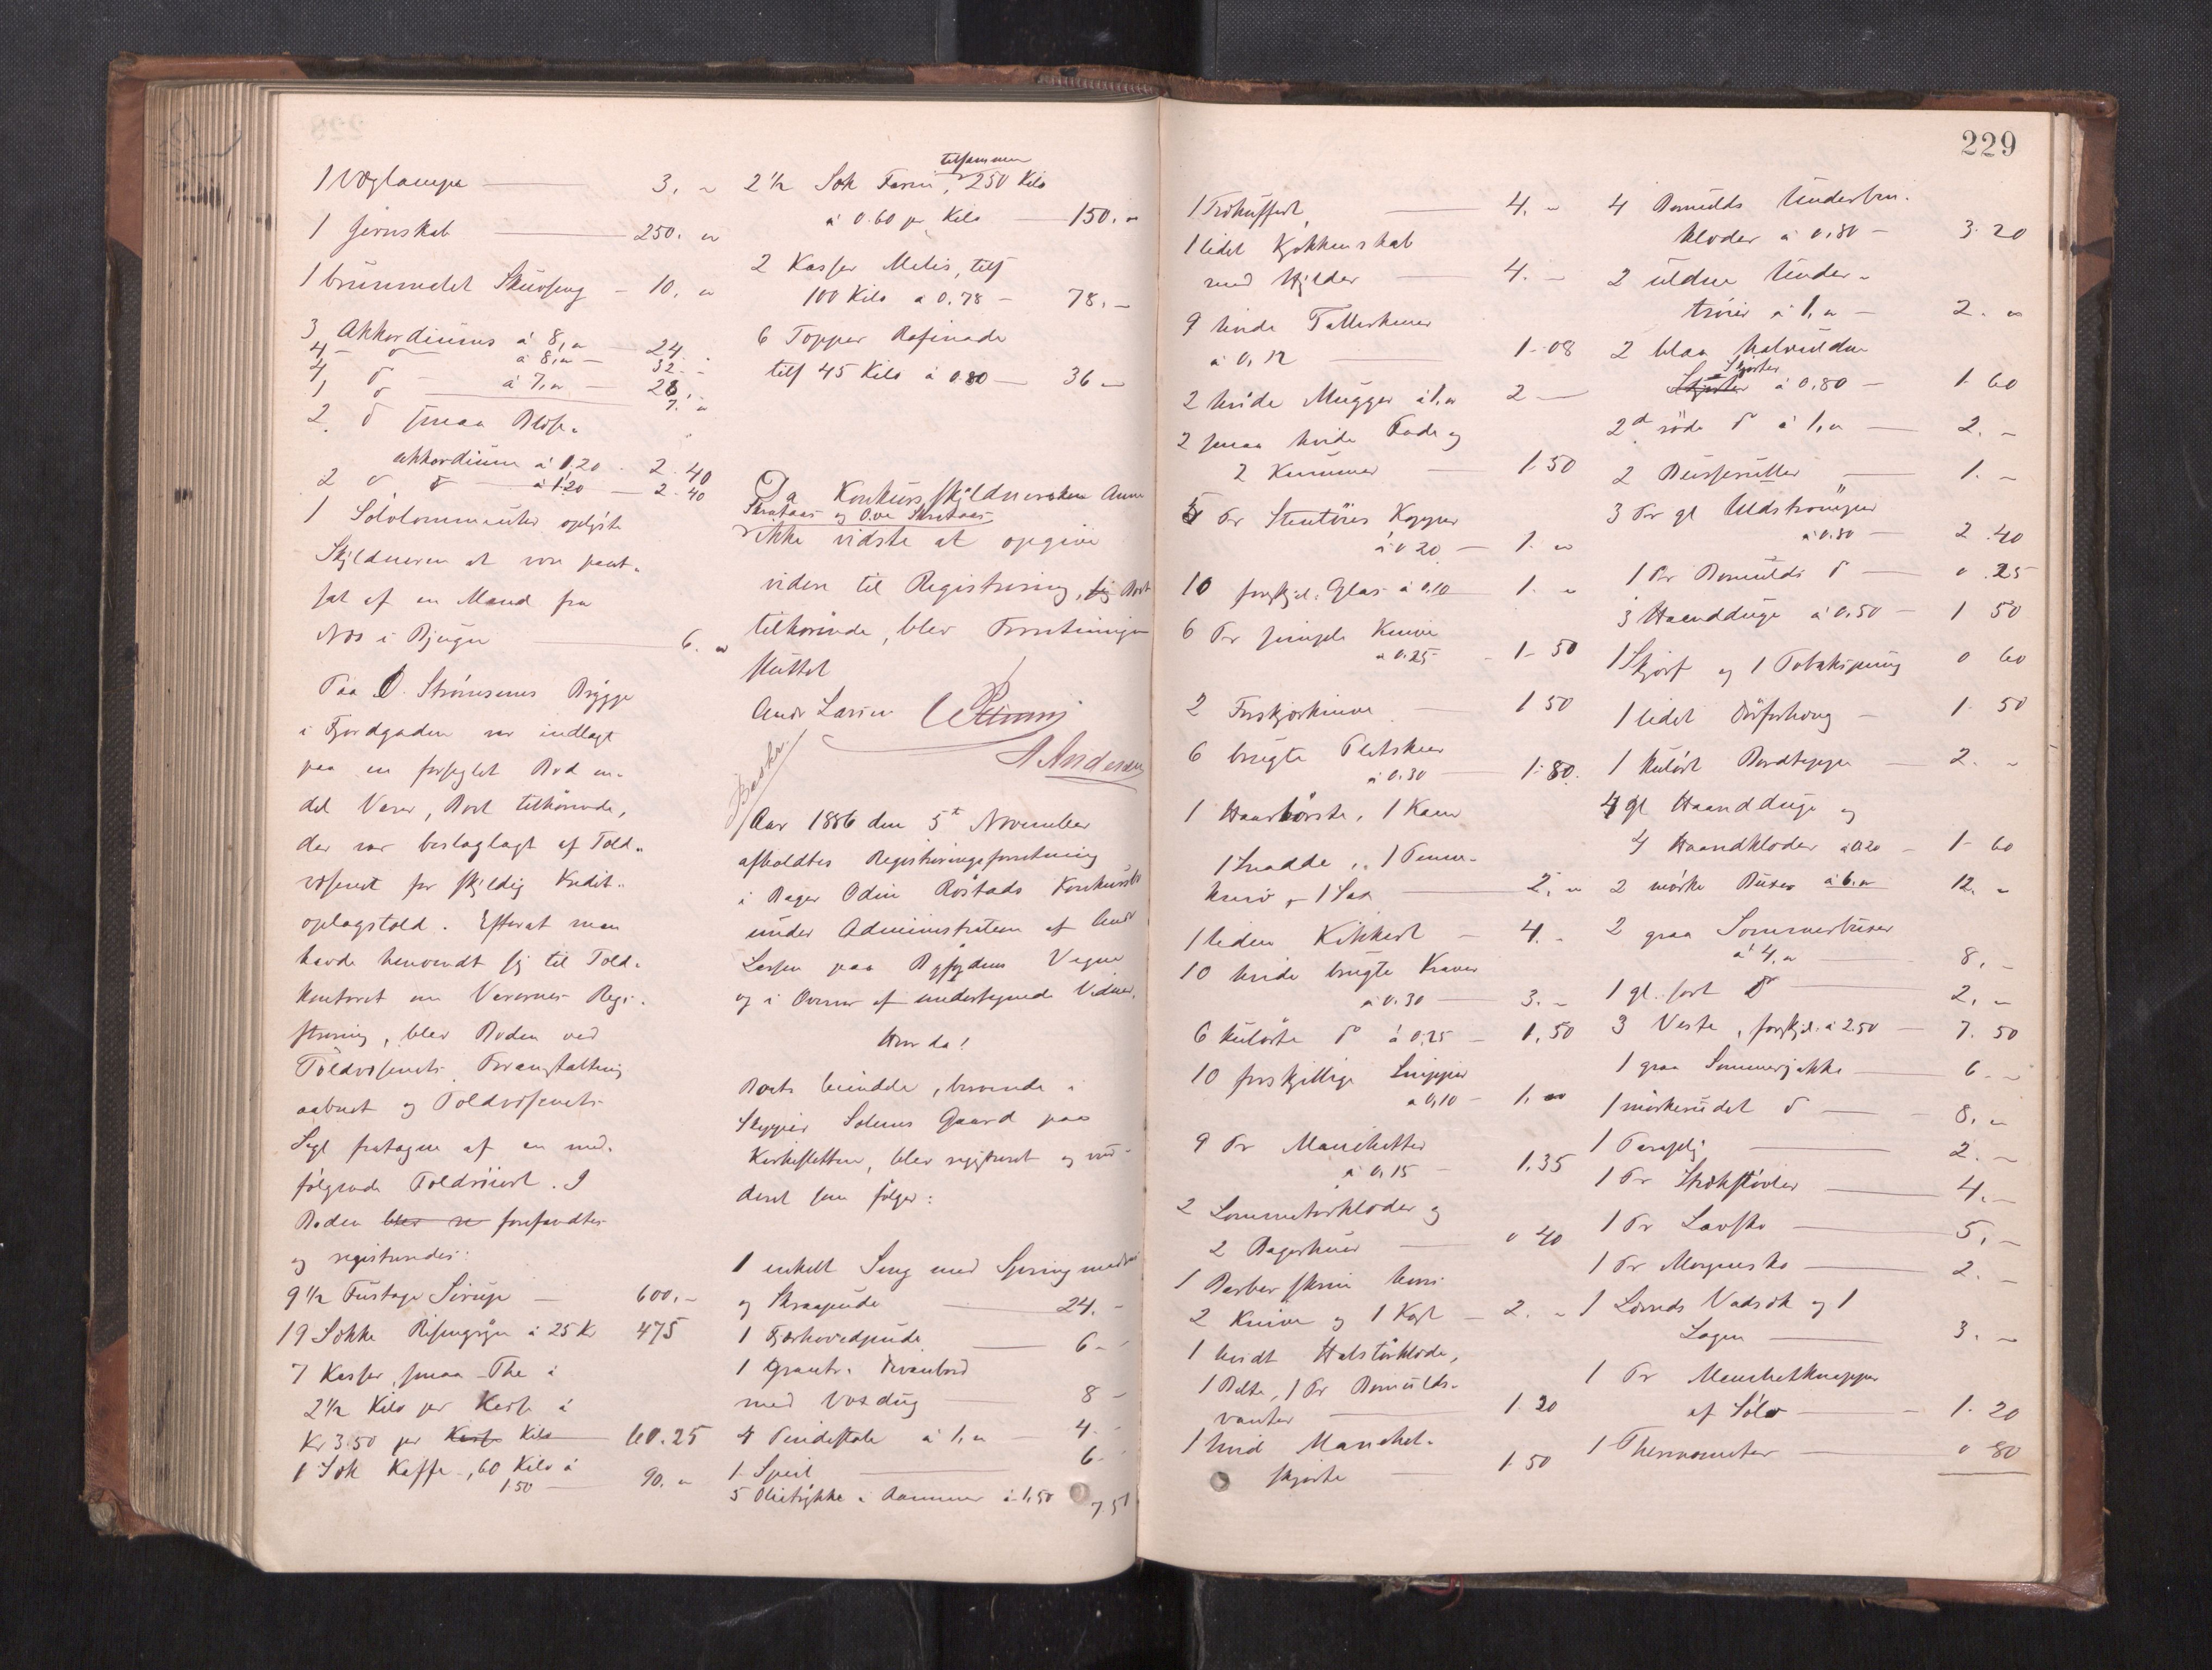 1 Væglampe — 3. „
1 Jernskab — 250. „
1 brunmalet Skuvseng — 10. „
3 Akkordiums á 8,„ — 24. „
4 — d — á 8,„ — 32. „
4 d — á 7,„ — 28. „
1 d — 7. „
2 d smaa Blæse-
akkordium á 1,20 . 2.40
2 d d — á 1.20 — 2.40
1 Sølvlommeuhr oplyste
Skyldneren at være pant-
sat af en Mand fra
Næs i Bjugn — 6. „
Paa O. Strømsenes Brygge
i Fjordgaden var indlagt
paa en forseglet Bod en-
del Varer, Boet tilhørende,
der var beslaglagt af Told-
væsenet for skyldig Kredit-
oplagstold. Efterat man
havde henvendt sig til Told-
kontoret om Varernes Regi-
strering, blev Boden ved
Toldvæsenets Foranstaltning
aabnet og Toldvæsenets
Segl fratagne af en med-
følgende Toldroiert. I
Boden blev re forefandtes
og registreredes:
9 1/2 Fustage Sirup — 600.-
19 Sække Risengryn á 25 Kr 475
7 Kasser smaa The á
2 1/2 Kilo pr Kasse á
Kr 3.50 pr Kasse Kilo — 60.25
1 Sæk Kaffe, 60 Kilo á
1.50 — 90. „
tilsammen
2 1/2 Sæk Farin, 250 Kilo
á 0.60 pr Kilo — 150. „
2 Kasser Melis, tils
100 Kilo a 0,78 — 78. —
6 Topper Rafinade
tils 45 Kilo á 0 80 — 36 —
Da Konkursskyldnerske Anne
Skrataas og Ove Skrataas
ikke vidste at opgive
videre til Registrering, sig Boet
tilhørende, blev Forretningen
sluttet
Andr Larsen
A Andersen
Aar 1886 den 5te November
afholdtes Registreringsforretning
i Bager Odin Røstads Konkursbo
under Administration af Andr
Larsen paa Byfogdens Vegne
og i Overvær af undertegnede Vidner.
Hvor da!
Boets Eiendele, beroende i
Skipper Solems Gaard paa
Kirkesletten, blev registreret og vur-
deret som følger:
1 enkelt Seng med Springmadras
og Skraapude — 24. -
1 Fjærhovedpude — 6 -
1 Grantr. Divanbord
med Voxdug — 8 -
4 Pindestole á 1,„ — 4. -
1 Speil — 6 -
5 Olietrykke i Rammer á 1,50 7 50
229
1 Trækuffert — 4. „
1 lidet Kjøkkenskab
med Hylder — 4. -
9 hvide Tallerkener
á 0,12 — 1-08
2 hvide Mugger á 1,„ 2 —
2 smaa hvide Fade og
2 Kummer — 1.50
5 Pr Stentøies Kopper
á 0 20 — 1. „
10 forskjel. Glas á 0,10 1. „
6 Pr simple Knive
a 0.25 - 1-50
2 Forskjærknive 1 50
6 brugte Pletskeer
á 0.30 — 1.80.
1 Haarbørste, 1 Kam
1 Snadde, 1 Penne-
kniv, 1 Sax — 2. „
1 liden Kikkert — 4. -
10 hvide brugte Kraver
á 0.30 — 3. „
6 kulørte d á 0,25 — 1.50
10 forskjellige Snipper
a 0,10 — 1. „
9 Pr Manchetter
á 0,15 — 1.35
2 Lommetørklæder og
2 Bagerhuer — 0 40
1 Barberskrin hvori
2 Knive og 1 Kost — 2. „
1 hvidt Halstørklæde,
1 Belte, 1 Pr Bomulds-
vanter — 1.20
1 hvid Manchet-
skjorte — 1.50
4 Bomulds Underben-
klæder á 0,80 — 3.20
2 uldne Under-
trøier á 1,„ — 2. „
2 blaa halvuldne
Skjorter
Skjorter á 0,80 — 1.60
2 d røde d á 1,„ — 2. -
2 Busseruller — 1. -
3 Par gl Uldstrømper
á 0.80 — 2.40
1 Par Bomulds d — 0.25
3 Haandduge á 0,50 — 1 50
1 Skjærf og 1 Tobakspung 0 60
1 lidet Dørforhæng — 1. 50
1 kulørt Bordteppe — 2. „
4 gl Haandduge og
4 Haandklæder a 0.20 — 1- 60
2 mørke Buxer á 6.„ 12. „
2 graa Sommerbuxer
á 4,„ — 8, —
1 gl. sort d — 2, „
3 Veste, forskjel. á 2.50 — 7. 50
1 graa Sommerjakke — 6. -
1 mørkerudet d — 8, „
1 Paraply — 2. -
1 Pr Skaftstøvler — 4. -
1 Pr Lavsko — 5, -
1 Pr Morgensko — 2. -
1 Lærreds Vadsæk og 1
Lagen — 3. -
1 Pr Manchetknapper
af Sølv — 1. 20
1 Thermometer — 0 80